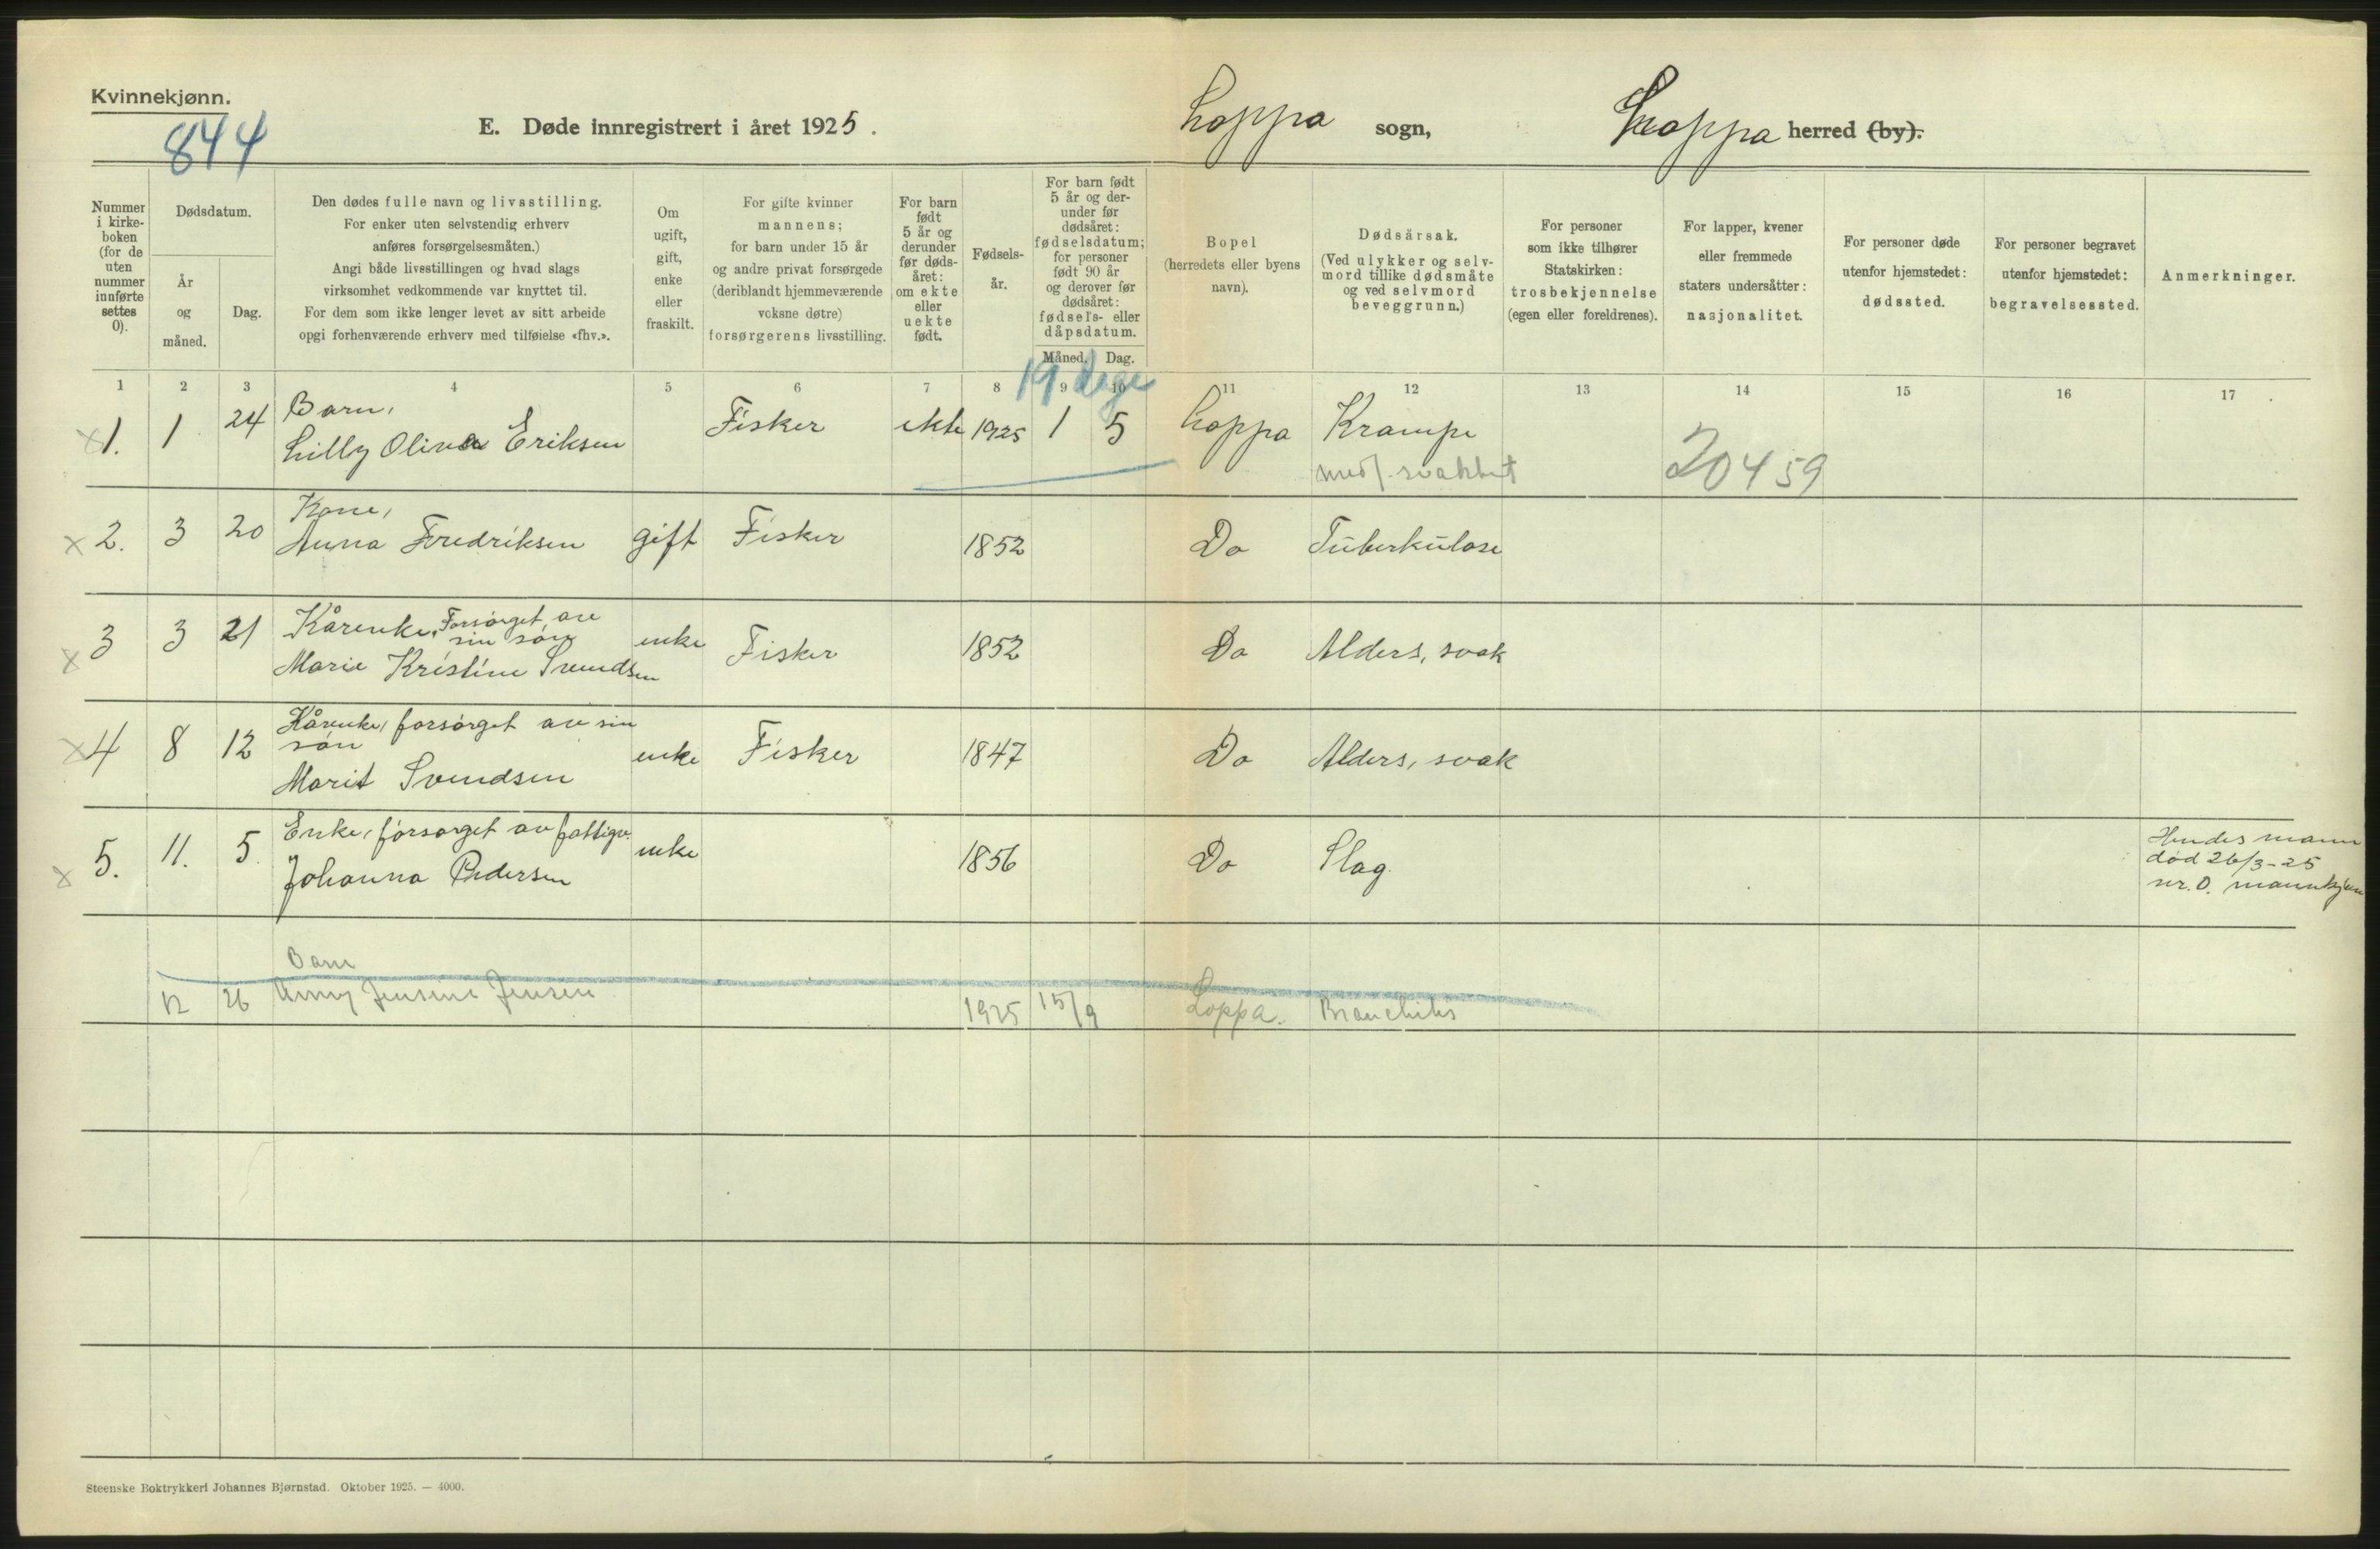 Kvinnekjønn.
844
E. Døde innregistrert i året 1925.
Loppa sogn,
Loppa herred (by).
Nummer i kirke-boken (for de uten nummer innførte settes 0).
Dødsdatum.
År og måned.
Dag.
Den dødes fulle navn og livsstilling.
For enker uten selvstendig erhverv
anføres forsørgelsesmåten.)
Angi både livsstillingen og hvad slags
virksomhet vedkommende var knyttet til.
For dem som ikke lenger levet av sitt arbeide
opgi forhenværende erhverv med tilføielse «fhv.».
Om ugift, gift, enke eller fraskilt.
For gifte kvinner
mannens;
for barn under 15 år
og andre privat forsørgede
(deriblandt hjemmeværende
voksne døtre)
forsørgerens livsstilling.
For barn født 5 år og derunder før døds-året: om ekte eller uekte født.
Fødsels-år.
For barn født
5 år og der-
under før
dødsåret:
fødselsdatum;
for personer
født 90 år
og derover før
dødsåret:
fødsels- eller
dåpsdatum.
Måned. Dag.
Bopel
(herredets eller byens
navn).
Dødsårsak.
(Ved ulykker og selv-
mord tillike dødsmåte
og ved selvmord
beveggrunn.)
For personer
som ikke tilhører
Statskirken:
trosbekjennelse
(egen eller foreldrenes).
For lapper, kvener
eller fremmede
staters undersåtter:
nasjonalitet.
For personer døde
utenfor hjemstedet:
dødssted.
For personer begravet
utenfor hjemstedet:
begravelsessted.
Anmerkninger.
1 2 3 4 5 6 7 8 9 10 11 12 13 14 15 16 17
19 dage
Barn,
x 1. 1 24 Lilly Oliva Eriksen Fisker ekte 1925 1 5 Loppa Krampe
medf. svakhet 20459
Kone,
x 2. 3 20 Anna Fredriksen gift Fisker 1852 Do Tuberkulose
Kårenke, Forsørget av
sin søn
x 3 3 21 Marie Kristine Svendsen enke Fisker 1852 Do Alders, svak
Kårenke, forsørget av sin
søn
x 4 8 12 Marit Svendsen enke Fisker 1847 Do Alders, svak
Enke, forsørget av fattigv.
x 5. 11. 5. Johanna Pedersen enke 1856 Do Slag.
Hendes mann
død 26/3-25
nr. 0. mannkjønn
Barn
12 26 Anny Jensine Jensen 1925 15/9 Loppa. Bronchitis
Steenske Boktrykkeri Johannes Bjørnstad. Oktober 1925. — 4000.